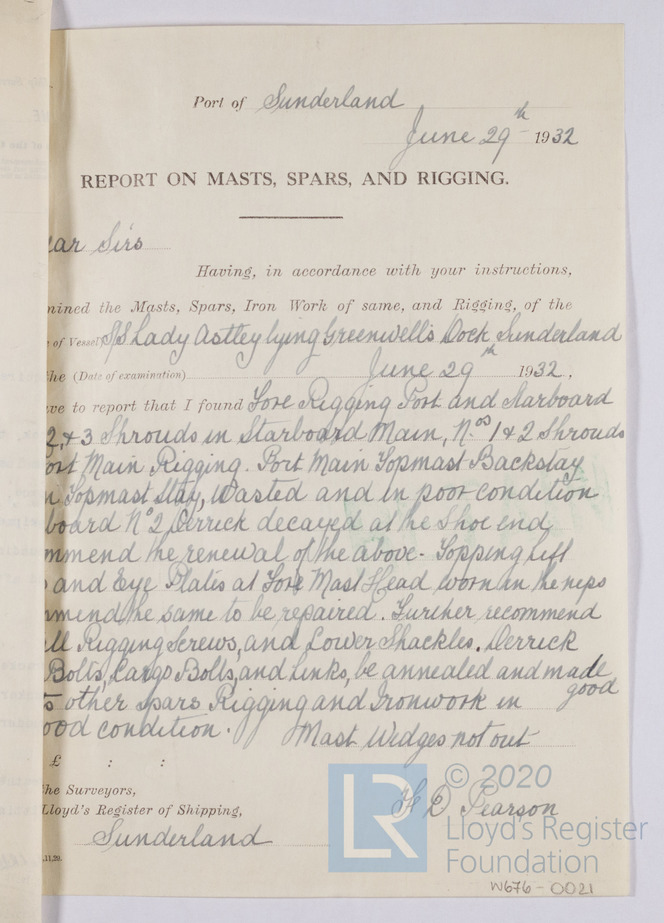 Port of Sunderland
June 29th 1932
REPORT ON MASTS, SPARS, AND RIGGING.
ear Sirs
Having, in accordance with your instructions,
mined the Masts, Spars, Iron Work of same, and Rigging, of the
e of Vessel S/S Lady Astley lying Greenwell's Dock Sunderland
the (Date of examination) June 29th 1932,
ve to report that I found Fore Rigging Port and Starboard
2, & 3 Shrouds in Starboard Main, Nos 1 & 2 Shrouds
ort Main Rigging. Port Main Topmast Backstay
n Topmast Stay, Wasted and in poor condition
board No 2 Derrick decayed at the Shoe end
mmend the renewal of the above - Topping Lift
and Eye Plates at Fore Mast Head worn in the nips
mmend the same to be repaired. Further recommend
ll Rigging Screws, and Lower Shackles. Derrick
Bolts, Cargo Bolts, and Links, be annealed and made
good
s other Spars Rigging and Ironwork in
ood condition. Mast Wedges not out
£ : :
he Surveyors,
Lloyd's Register of Shipping,
Sunderland
D Pearson
,11,29.
LR
© 2020
Lloyd's Register
Foundation
W676-0021